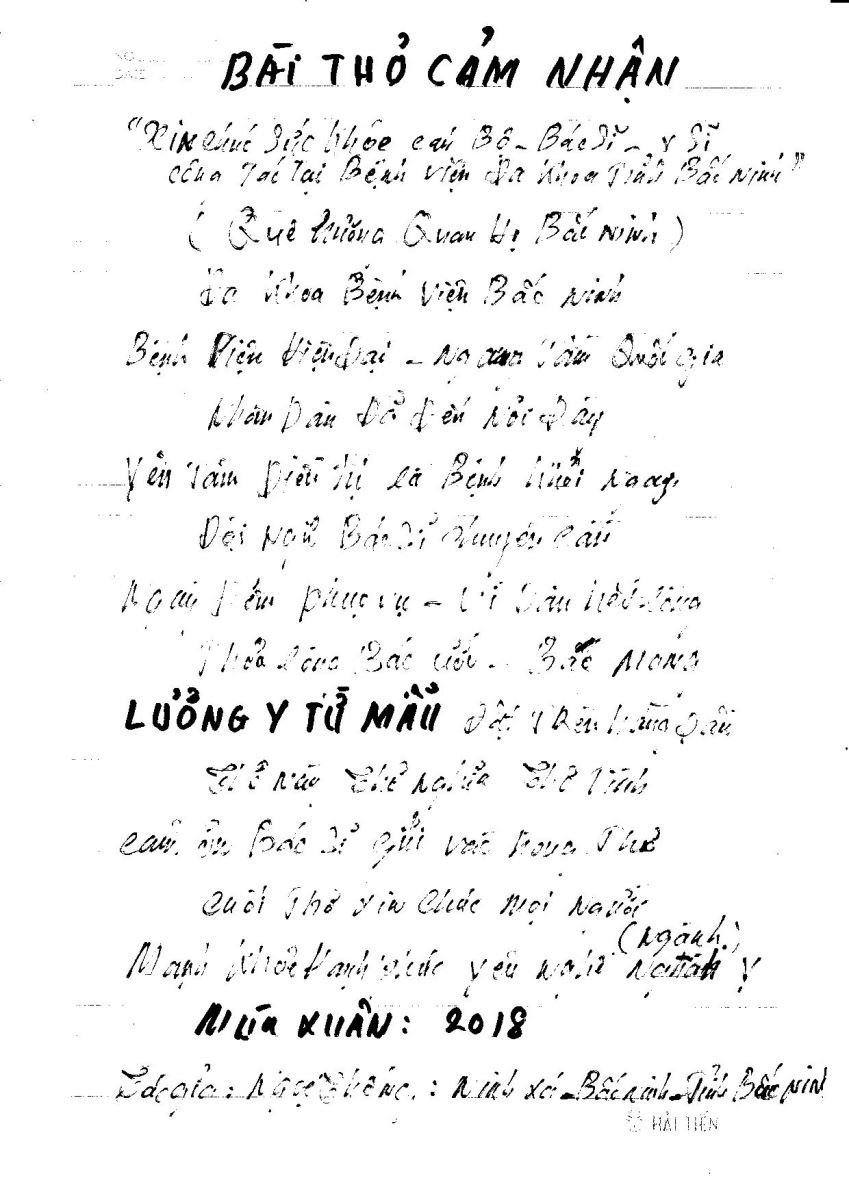 BÀI THƠ CẢM NHẬN
"Xin chúc sức khỏe cán Bộ - Bác sĩ - y sĩ
công Tác Tại Bệnh viện Đa khoa Tỉnh Bắc Ninh"
(Quê hương Quan Họ Bắc Ninh)
Đa khoa Bệnh Viện Bắc Ninh
Bệnh Viện Hiện Đại - Ngang Tầm Quốc gia
Nhân Dân Đã Đến Nơi Đây
Yên Tâm Điều Trị là Bệnh khỏi ngay
Đội Ngũ Bác sĩ chuyên cần
Ngày Đêm phục vụ - Vì Dân hết lòng
Thỏa lòng Bác ước - Bác mong
LƯƠNG Y TỪ MẪU Đặt Trên hàng Đầu
Thơ Này Thơ nghĩa Thơ Tình
Cảm ơn Bác sĩ gửi vào trong Thơ
Cuối Thơ xin Chúc mọi người
(Ngành)
Mạnh khỏe hạnh phúc yêu nghề Y
MÙA XUÂN: 2018
Tác giả: : Ninh xá - Bắc ninh - Tỉnh Bắc Ninh
HẢI TIẾN